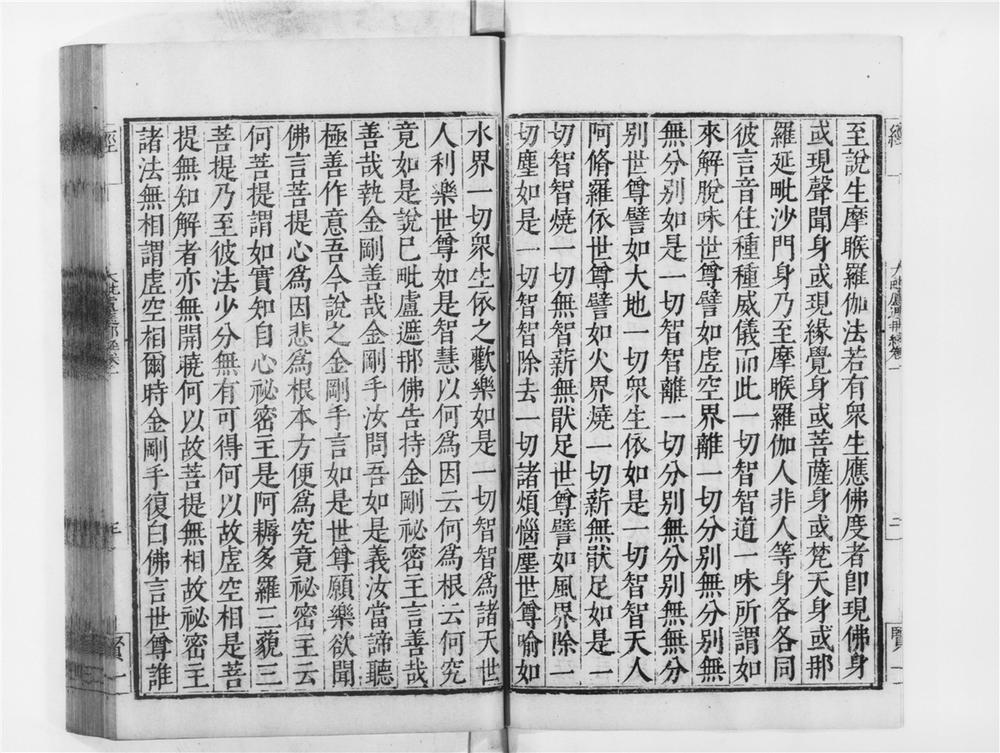 至說生摩睺羅伽法若有衆生應佛度者卽現佛身
或現聲聞身或現緣覺身或菩薩身或梵天身或那
羅延毗沙門身乃至摩睺羅伽人非人等身各各同
彼言音住種種威儀而此一切智智道一味所謂如
來解脫味世尊譬如虛空界離一切分別無分別無
無分別如是一切智智離一切分別無分別無無分
別世尊譬如大地一切衆生依如是一切智智天人
阿脩羅依世尊譬如火界燒一切薪無猒足如是一
切智智燒一切無智薪無猒足世尊譬如風界除一
切塵如是一切智智除去一切諸煩惱塵世尊喻如
水界一切衆生依之歡樂如是一切智智爲諸天世
人利樂世尊如是智慧以何爲因云何爲根云何究
竟如是說已毗盧遮那佛告持金剛祕密主言善哉
善哉執金剛善哉金剛手汝問吾如是義汝當諦聽
極善作意吾今說之金剛手言如是世尊願樂欲聞
佛言菩提心爲因悲爲根本方便爲究竟祕密主云
何菩提謂如實知自心祕密主是阿耨多羅三藐三
菩提乃至彼法少分無有可得何以故虛空相是菩
提無知解者亦無開曉何以故菩提無相故祕密主
諸法無相謂虛空相爾時金剛手復白佛言世尊誰
經
賢一